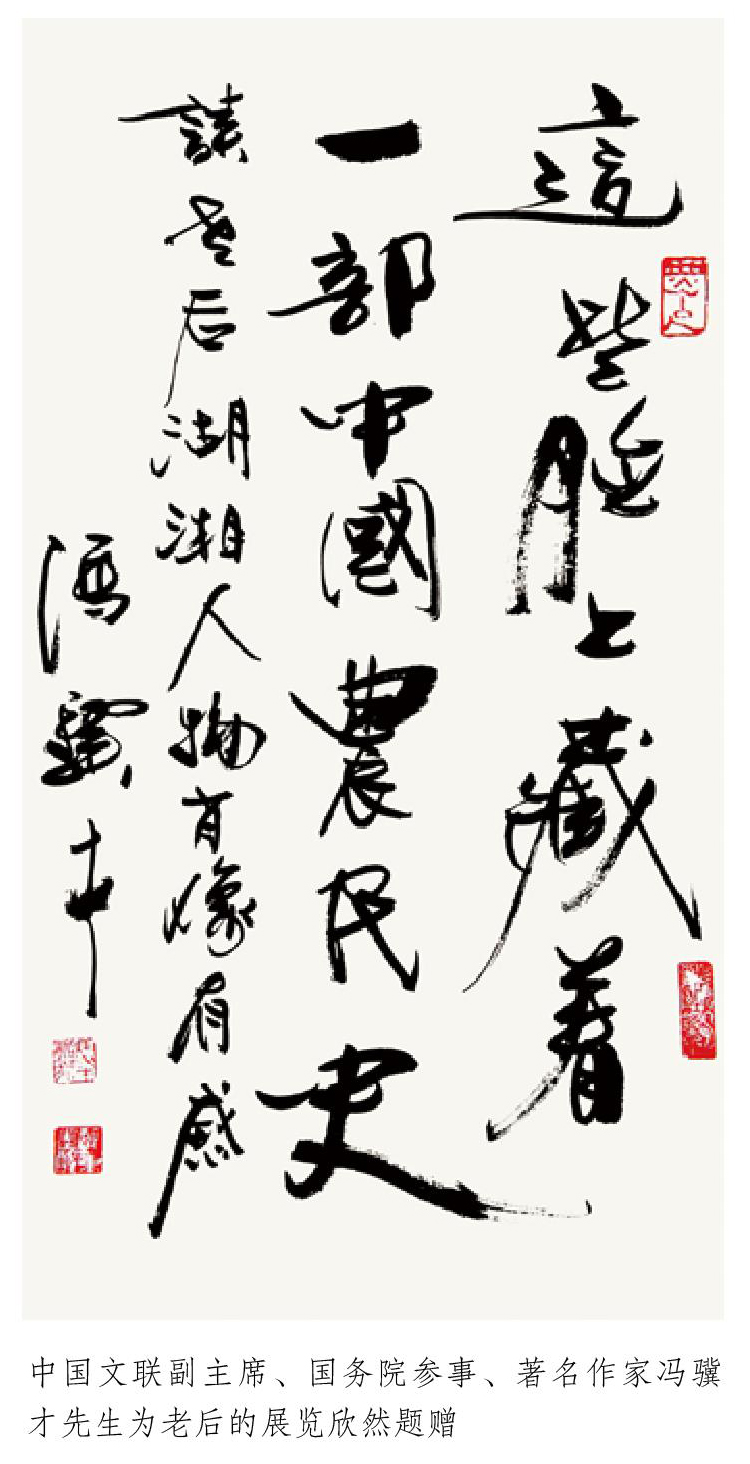 這些臉上藏着
一部中國農民史
讀老后湖湘人物肖像有感
馮驥才
中国文联副主席、国务院参事、著名作家冯骥
才先生为老后的展览欣然题赠